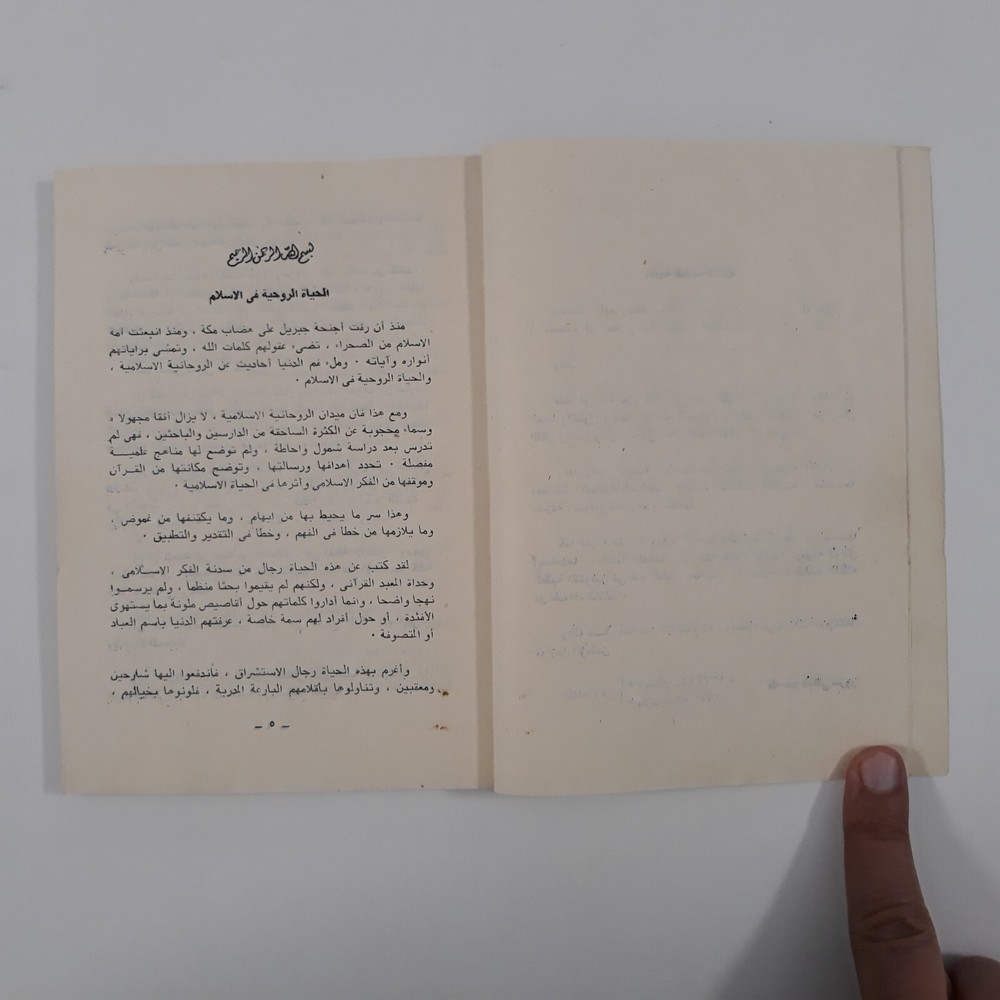 بسم الله الرحمن الرحيم
الحياة الروحية فى الاسلام
منذ أن رفت أجنحة جبريل على هضاب مكة ، ومنذ انبعثت أمة
الاسلام من الصحراء ، تضىء عقولهم كلمات الله ، وتمشى براياتهم
أنواره وآياته ٠ وملء فم الدنيا أحاديث عن الروحانية الاسلامية ،
والحياة الروحية فى الاسلام ٠
ومع هذا فان ميدان الروحانية الاسلامية ، لا يزال أفقا مجهولا ،
وسماء محجوبة عن الكثرة الساحقة من الدارسين والباحثين ، فهى لم
تدرس بعد دراسة شمول واحاطة ، ولم توضع لها مناهج علميـــة
مفصلة ٠ تحدد أهدافها ورسالتها ، وتوضح مكانتها من القرآن
وموقفها من الفكر الاسلامى وأثرها فى الحياة الاسلامية ٠
وهذا سر ما يحيط بها من ابهام ، وما يكتنفها من غموض ،
وما يلازمها من خطأ فى الفهم ، وخطأ فى التقدير والتطبيق ٠
لقد كتب عن هذه الحياة رجال من سدنة الفكر الاسـلامى ،
وحداة المعبد القرآنى ، ولكنهم لم يقيموا بحثا منظما ، ولم يرسمـوا
نهجا واضحا ، وانما أداروا كلماتهم حول أقاصيص ملونة بما يستهوى
الأفئدة ، أو حول أفراد لهم سمة خاصة ، عرفتهم الدنيا باسم العباد
أو المتصوفة ٠
وأغرم بهذه الحياة رجال الاستشراق ، فأندفعوا اليها شارحين
ومعقبين ، وتناولوها بأقلامهم البارعة المدربة ، فلونوها بخيالهم ،
ــ ٥ ــ